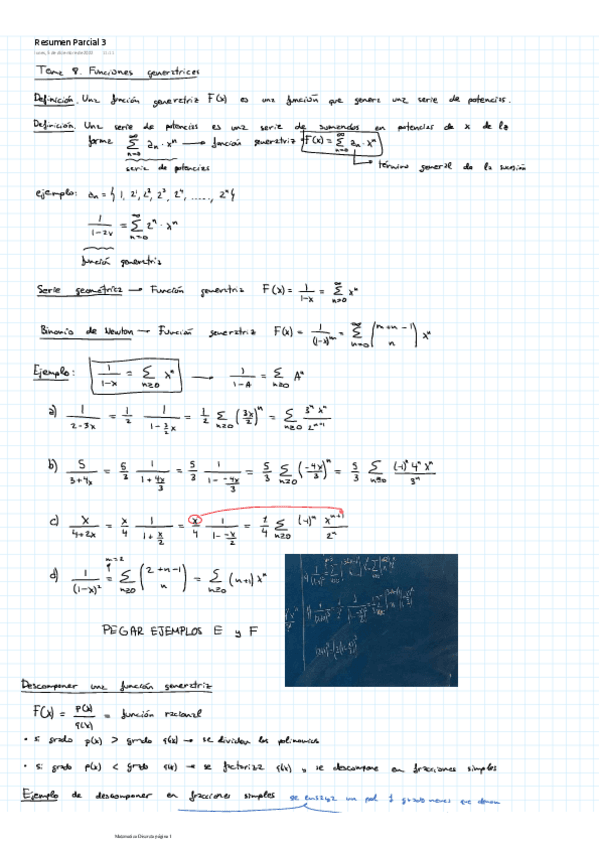 Resumen Parcial 3
Tema 8. Funciones generatrices
Definición. Una función generatriz F(x) es una función que genera una serie de potencias.
Definición. Una serie de potencias es una serie de sumandos en potencias de x de la
forma ∑_{n=0}^{∞} a_n · x^n → función generatriz F(x) = ∑_{n=0}^{∞} a_n · x^n
serie de potencias
término general de la sucesión
ejemplo: a_n = { 1, 2^1, 2^2, 2^3, 2^4, ....., 2^n }
1/(1-2x) = ∑_{n=0}^{∞} 2^n · x^n
función generatriz
Serie geométrica → Función generatriz F(x) = 1/(1-x) = ∑_{n≥0}^{∞} x^n
Binomio de Newton → Función generatriz F(x) = 1/(1-x)^m = ∑_{n=0}^{∞} (m+n-1 n) x^n
Ejemplo: 1/(1-x) = ∑_{n≥0} x^n → 1/(1-A) = ∑_{n≥0} A^n
a) 1/(2-3x) = 1/2 1/(1-3/2 x) = 1/2 ∑_{n≥0} (3x/2)^n = ∑_{n≥0} 3^n x^n/2^{n+1}
b) 5/(3+4x) = 5/3 1/(1+4x/3) = 5/3 1/(1- -4x/3) = 5/3 ∑_{n≥0} (-4x/3)^n = 5/3 ∑_{n≥0} (-1)^n 4^n x^n/3^n
c) x/(4+2x) = x/4 1/(1+x/2) = x/4 1/(1- -x/2) = 1/4 ∑_{n≥0} (-1)^n x^{n+1}/2^n
m=2
d) 1/(1-x)^2 = ∑_{n≥0} (2+n-1 n) = ∑_{n≥0} (n+1) x^n
PEGAR EJEMPLOS E y F
Descomponer una función generatriz
F(x) = p(x)/q(x) = función racional
• si grado p(x) > grado q(x) → se dividen los polinomios
• si grado p(x) < grado q(x) → se factoriza q(x) y se descompone en fracciones simples
Ejemplo de descomponer en fracciones simples se ensaya un pol 1 grado menos que
Matemática Discreta página 1